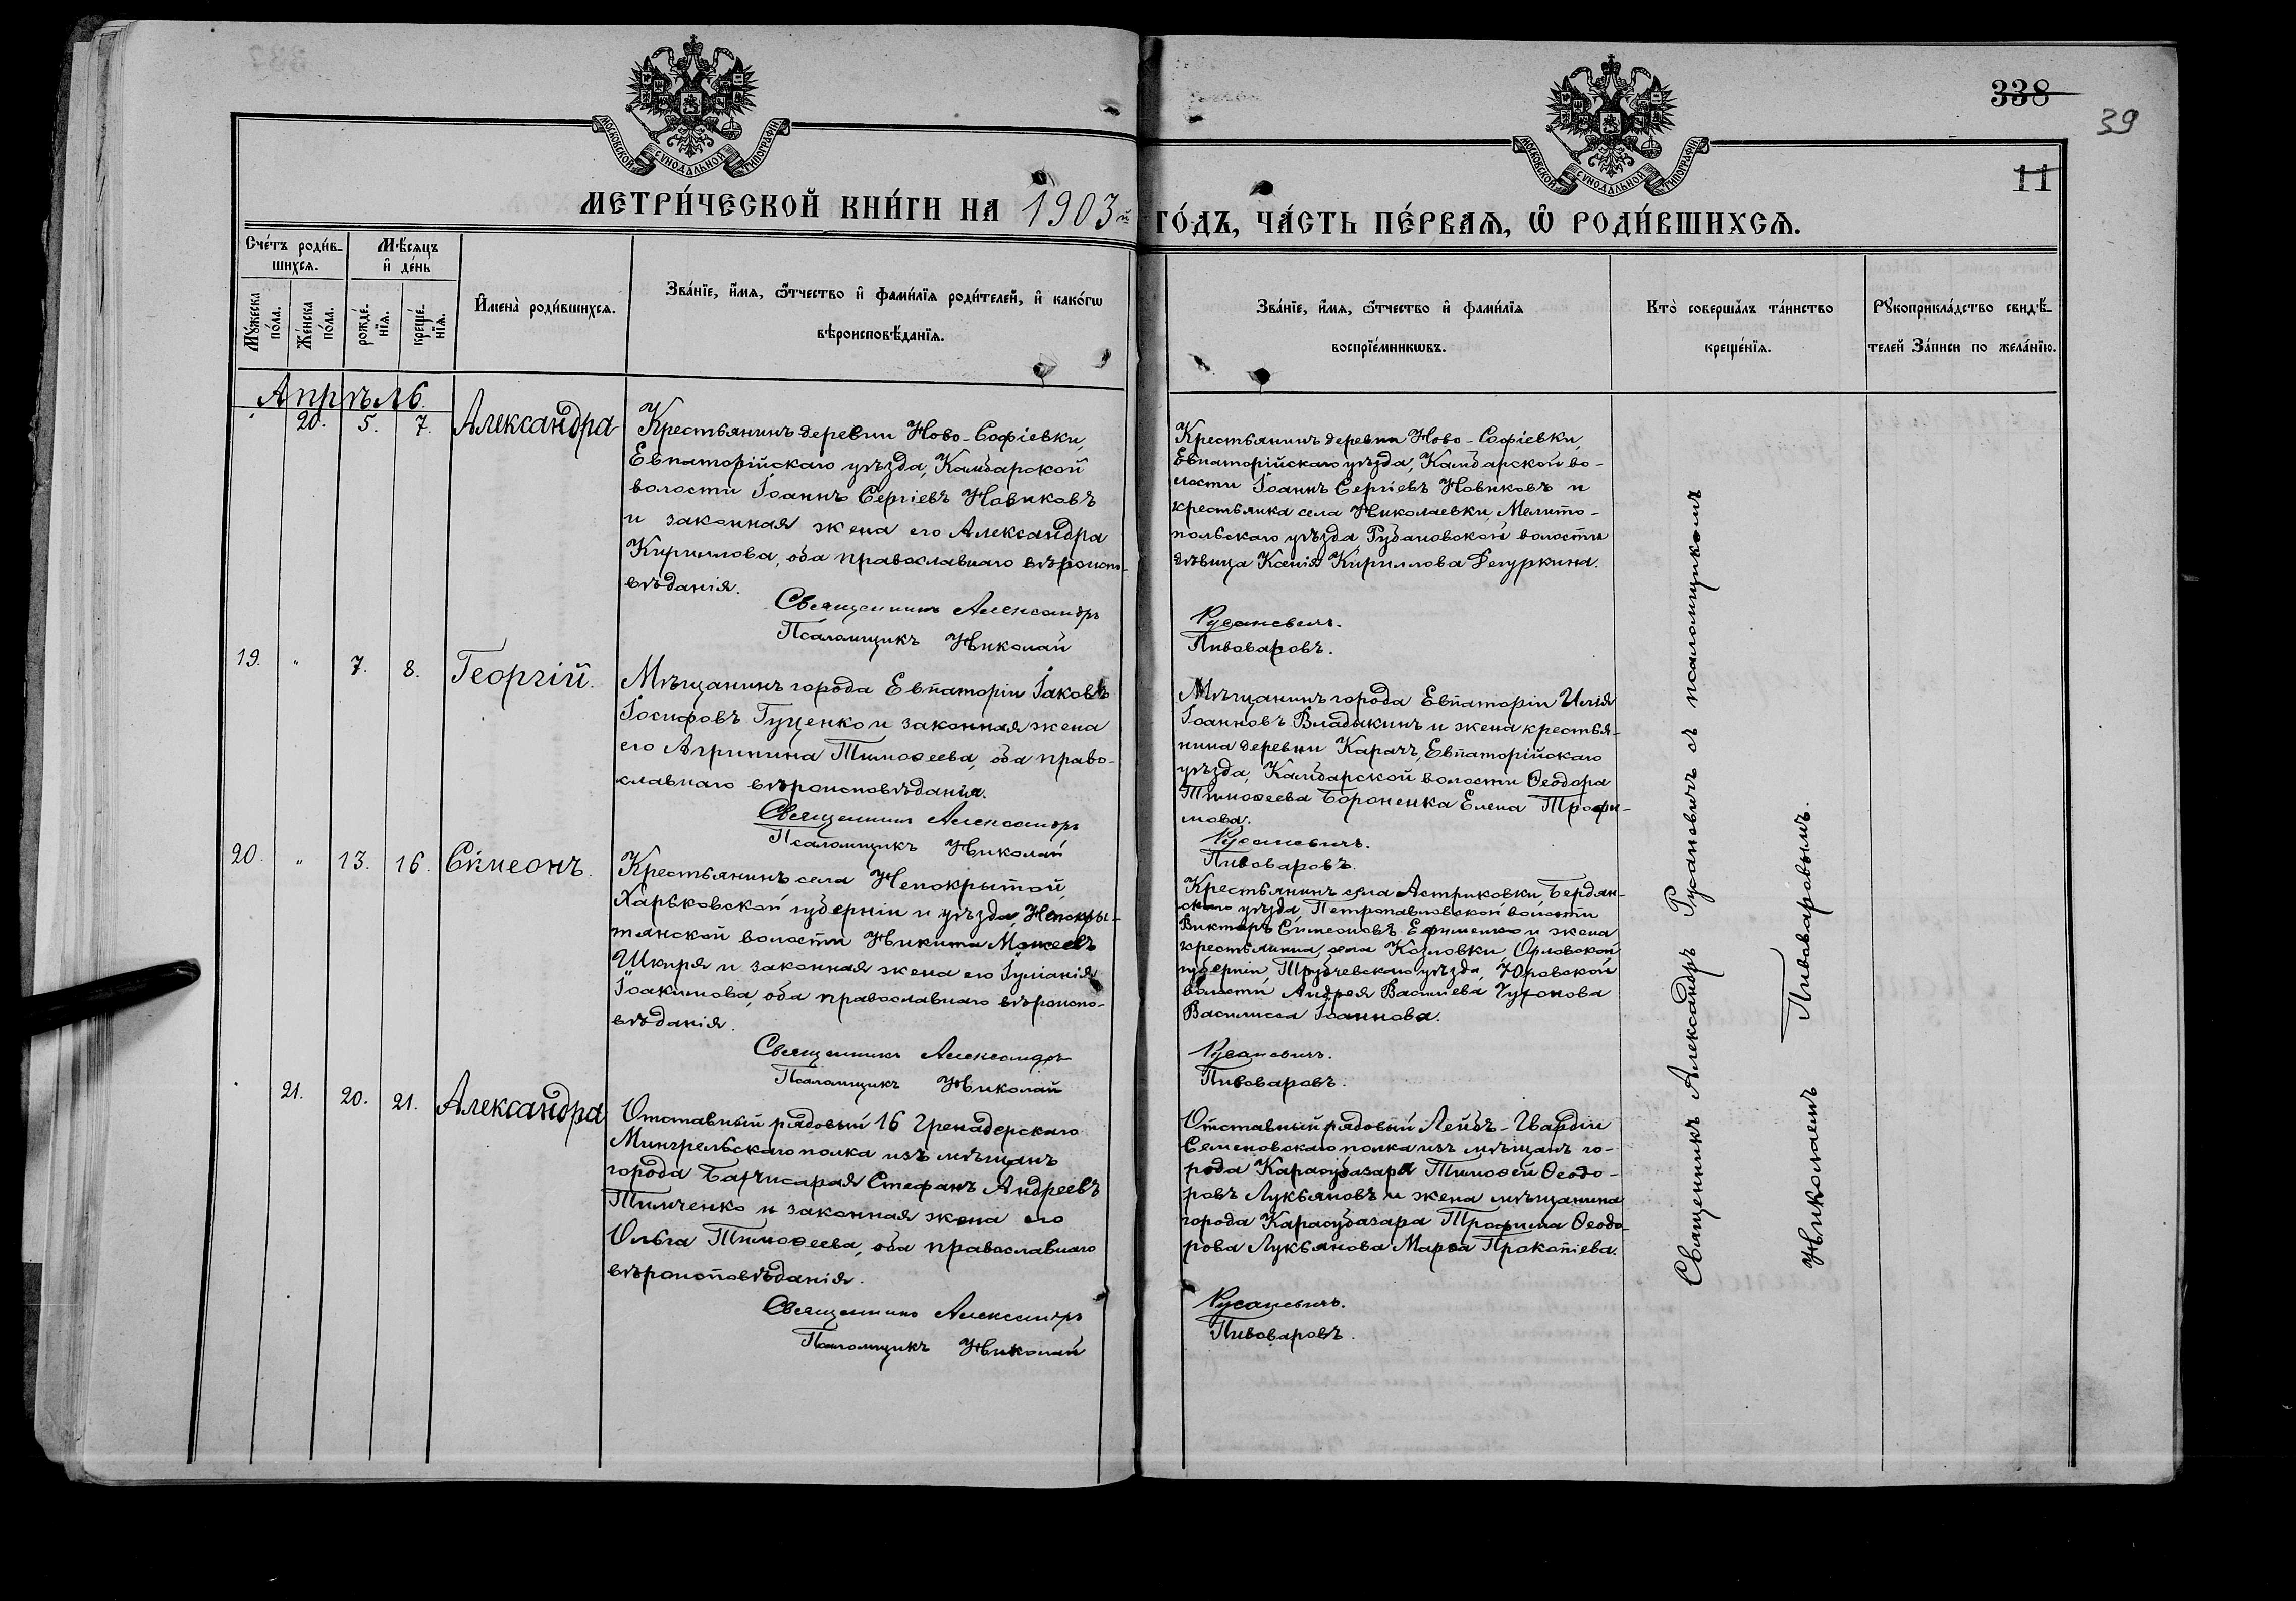 338
39
11
МОСКОВСКОЙ СѴНОДАЛЬНОЙ ТИПОГРАФІИ
МОСКОВСКОЙ СѴНОДАЛЬНОЙ ТИПОГРАФІИ
МЕТРИ́ЧЕСКОЙ КНИ́ГИ НА 1903й ГО́ДЪ, ЧА́СТЬ ПЕ́РВАѦ, Ѽ РОДИ́ВШИХСѦ.
Сче́тъ роди́в-
шихсѧ.
Мѣ́сѧцъ
и҆ де́нь
Мꙋ́жеска по́ла.
Же́нска по́ла.
рожде́-нїѧ.
креще́-нїѧ.
И҆мена̀ роди́вшихсѧ.
Зва́нїе, и҆́мѧ, ѻ҆́тчество и҆ фами́лїѧ роди́телей, и҆ како́гѡ
вѣроисповѣ́данїѧ.
Зва́нїе, и҆́мѧ, ѻ҆́тчество и҆ фами́лїѧ
воспрїе́мникѡвъ.
Кто̀ соверша́лъ та́инство
креще́нїѧ.
Рꙋкоприкла́дство свидѣ́-
телей За́писи по жела́нїю.
Апрѣль.
20. 5. 7. Александра
Крестьянинъ деревни Ново-Софіевки,
Евпаторійскаго уѣзда, Камбарской
волости Іоаннъ Сергіевъ Новиковъ
и законная жена его Александра
Кириллова, оба православнаго вѣроиспо-
вѣданія.
Священникъ Александръ
Псаломщикъ Николай
Крестьянинъ деревни Ново-Софіевки,
Евпаторійскаго уѣзда, Камбарской во-
лости Іоаннъ Сергіевъ Новиковъ и
крестьянка села Николаевки, Мелито-
польскаго уѣзда Рубановской волости
дѣвица Ксенія Кириллова Дегуркина.
Русаневичъ.
Пивоваровъ.
19. " 7. 8. Георгій.
Мѣщанинъ города Евпаторіи Іаковъ
Іосифовъ Гуценко и законная жена
его Агрипина Тимоѳеева, оба право-
славнаго вѣроисповѣданія.
Священникъ Александръ
Псаломщикъ Николай
Мѣщанинъ города Евпаторіи Илія
Іоанновъ Владыкинъ и жена крестья-
нина деревни Карачъ, Евпаторійскаго
уѣзда, Камбарской волости Ѳеодора
Тимоѳеева Бороненка Елена Трофи-
мова.
Русаневичъ.
Пивоваровъ.
20. " 13. 16. Сѵмеонъ.
Крестьянинъ села Непокрытой,
Харьковской губерніи и уѣзда, Непокры-
тянской волости Никита Моисеевъ
Шкиря и законная жена его Іуліанія
Іоакимова, оба православнаго вѣроиспо-
вѣданія.
Священникъ Александръ
Псаломщикъ Николай
Крестьянинъ села Астриковки, Бердян-
скаго уѣзда, Петропавловской волости
Викторъ Сѵмеоновъ Ефименко и жена
крестьянина села Козловки, Орловской
губерніи, Трубчевскаго уѣзда, Юровской
волости Андрея Василіева
Василисса Іоаннова.
Русаневичъ.
Пивоваровъ.
21. 20. 21. Александра
Отставный рядовый 16 Гренадерскаго
Мингрельскаго полка изъ мѣщанъ
города Бахчисарая Стефанъ Андреевъ
Тимченко и законная жена его
Ольга Тимоѳеева, оба православнаго
вѣроисповѣданія.
Священникъ Александръ
Псаломщикъ Николай
Отставный рядовый Лейбъ-Гвардіи
Семеновскаго полка изъ мѣщанъ го-
рода Карасубазара Тимоѳей Ѳеодо-
ровъ Лукьяновъ и жена мѣщанина
города Карасубазара Трофима Ѳеодо-
рова Лукьянова Марѳа Прокопіева.
Русаневичъ.
Пивоваровъ.
Священникъ Александръ Русаневичъ съ псаломщикомъ
Николаемъ Пивоваровымъ.